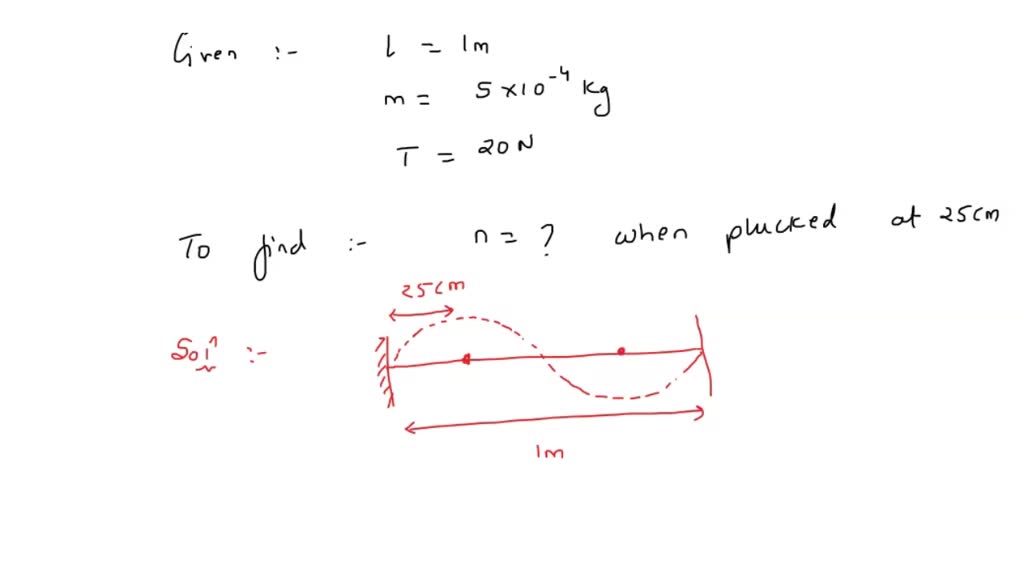 Given :- l = 1m
m = 5 × 10⁻⁴ kg
T = 20 N
To find :- n = ? when plucked at 25cm
25cm
Solⁿ :-
1m